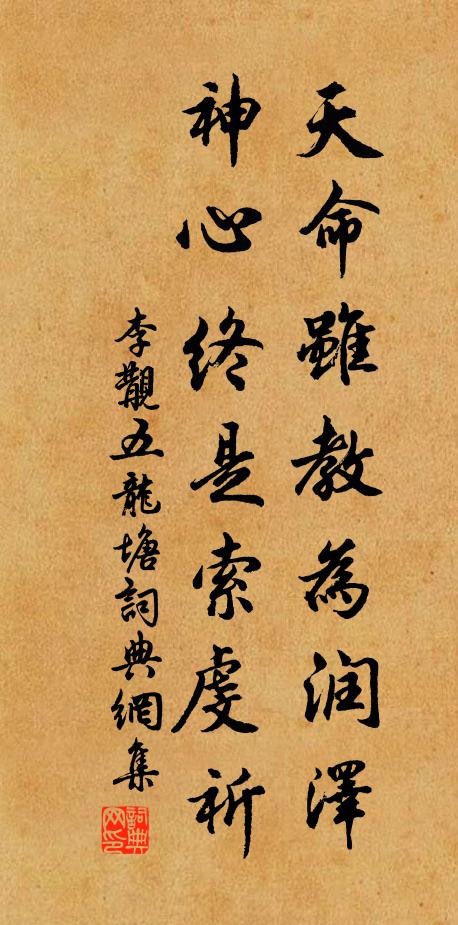 天命雖教為润澤
神心終是索虔祈
李觀五龍塘詞典網集
詞典网印